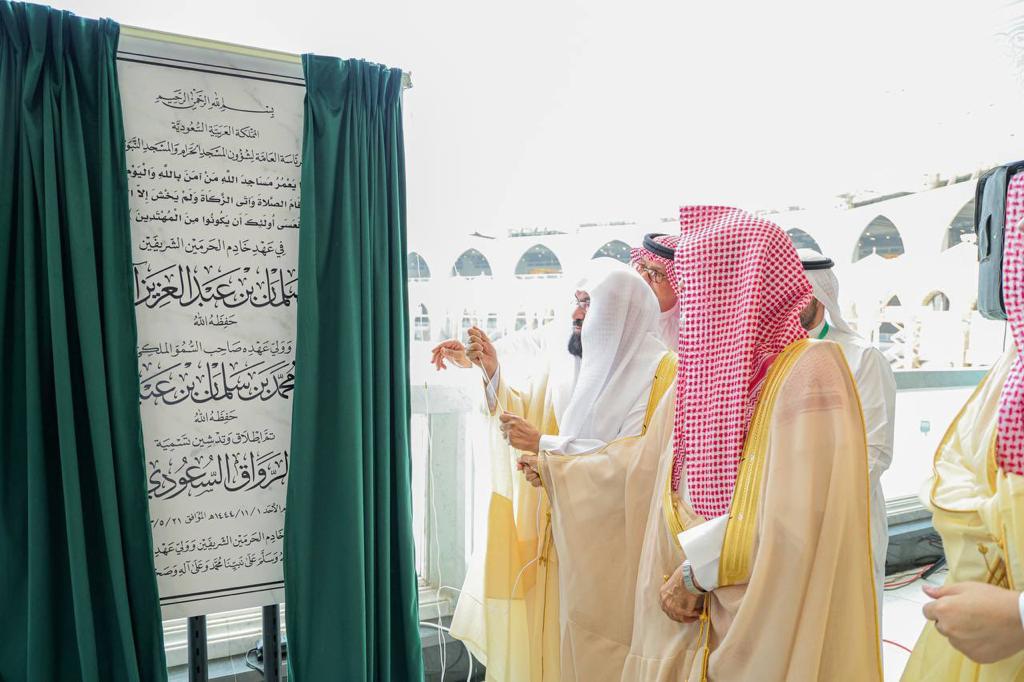 بسم الله الرحمن الرحيم
المملكة العربية السعودية
رئاسة العامة لشؤون المسجد الحرام والمسجد النبو
يَعْمُرُ مَسَاجِدَ اللَّهِ مَنْ آمَنَ بِاللَّهِ وَالْيَوْمِ
قَامَ الصَّلَاةَ وَآتَى الزَّكَاةَ وَلَمْ يَخْشَ إِلَّا
فَعَسَى أُولَئِكَ أَن يَكُونُوا مِنَ الْمُهْتَدِينَ
في عهد خادم الحرمين الشريفين
سلمان بن عبد العزيز
حفظه الله
وولي عهده صاحب السمو الملكي
محمد بن سلمان بن عبد
حفظه الله
تم إطلاق وتدشين تسمية
الرواق السعودي
الأحد ١٤٤٤/١١/١هـ الموافق ٣/٥/٢١
خادم الحرمين الشريفين وولي عهد
وسلم على نبينا محمد وعلى آله وصح